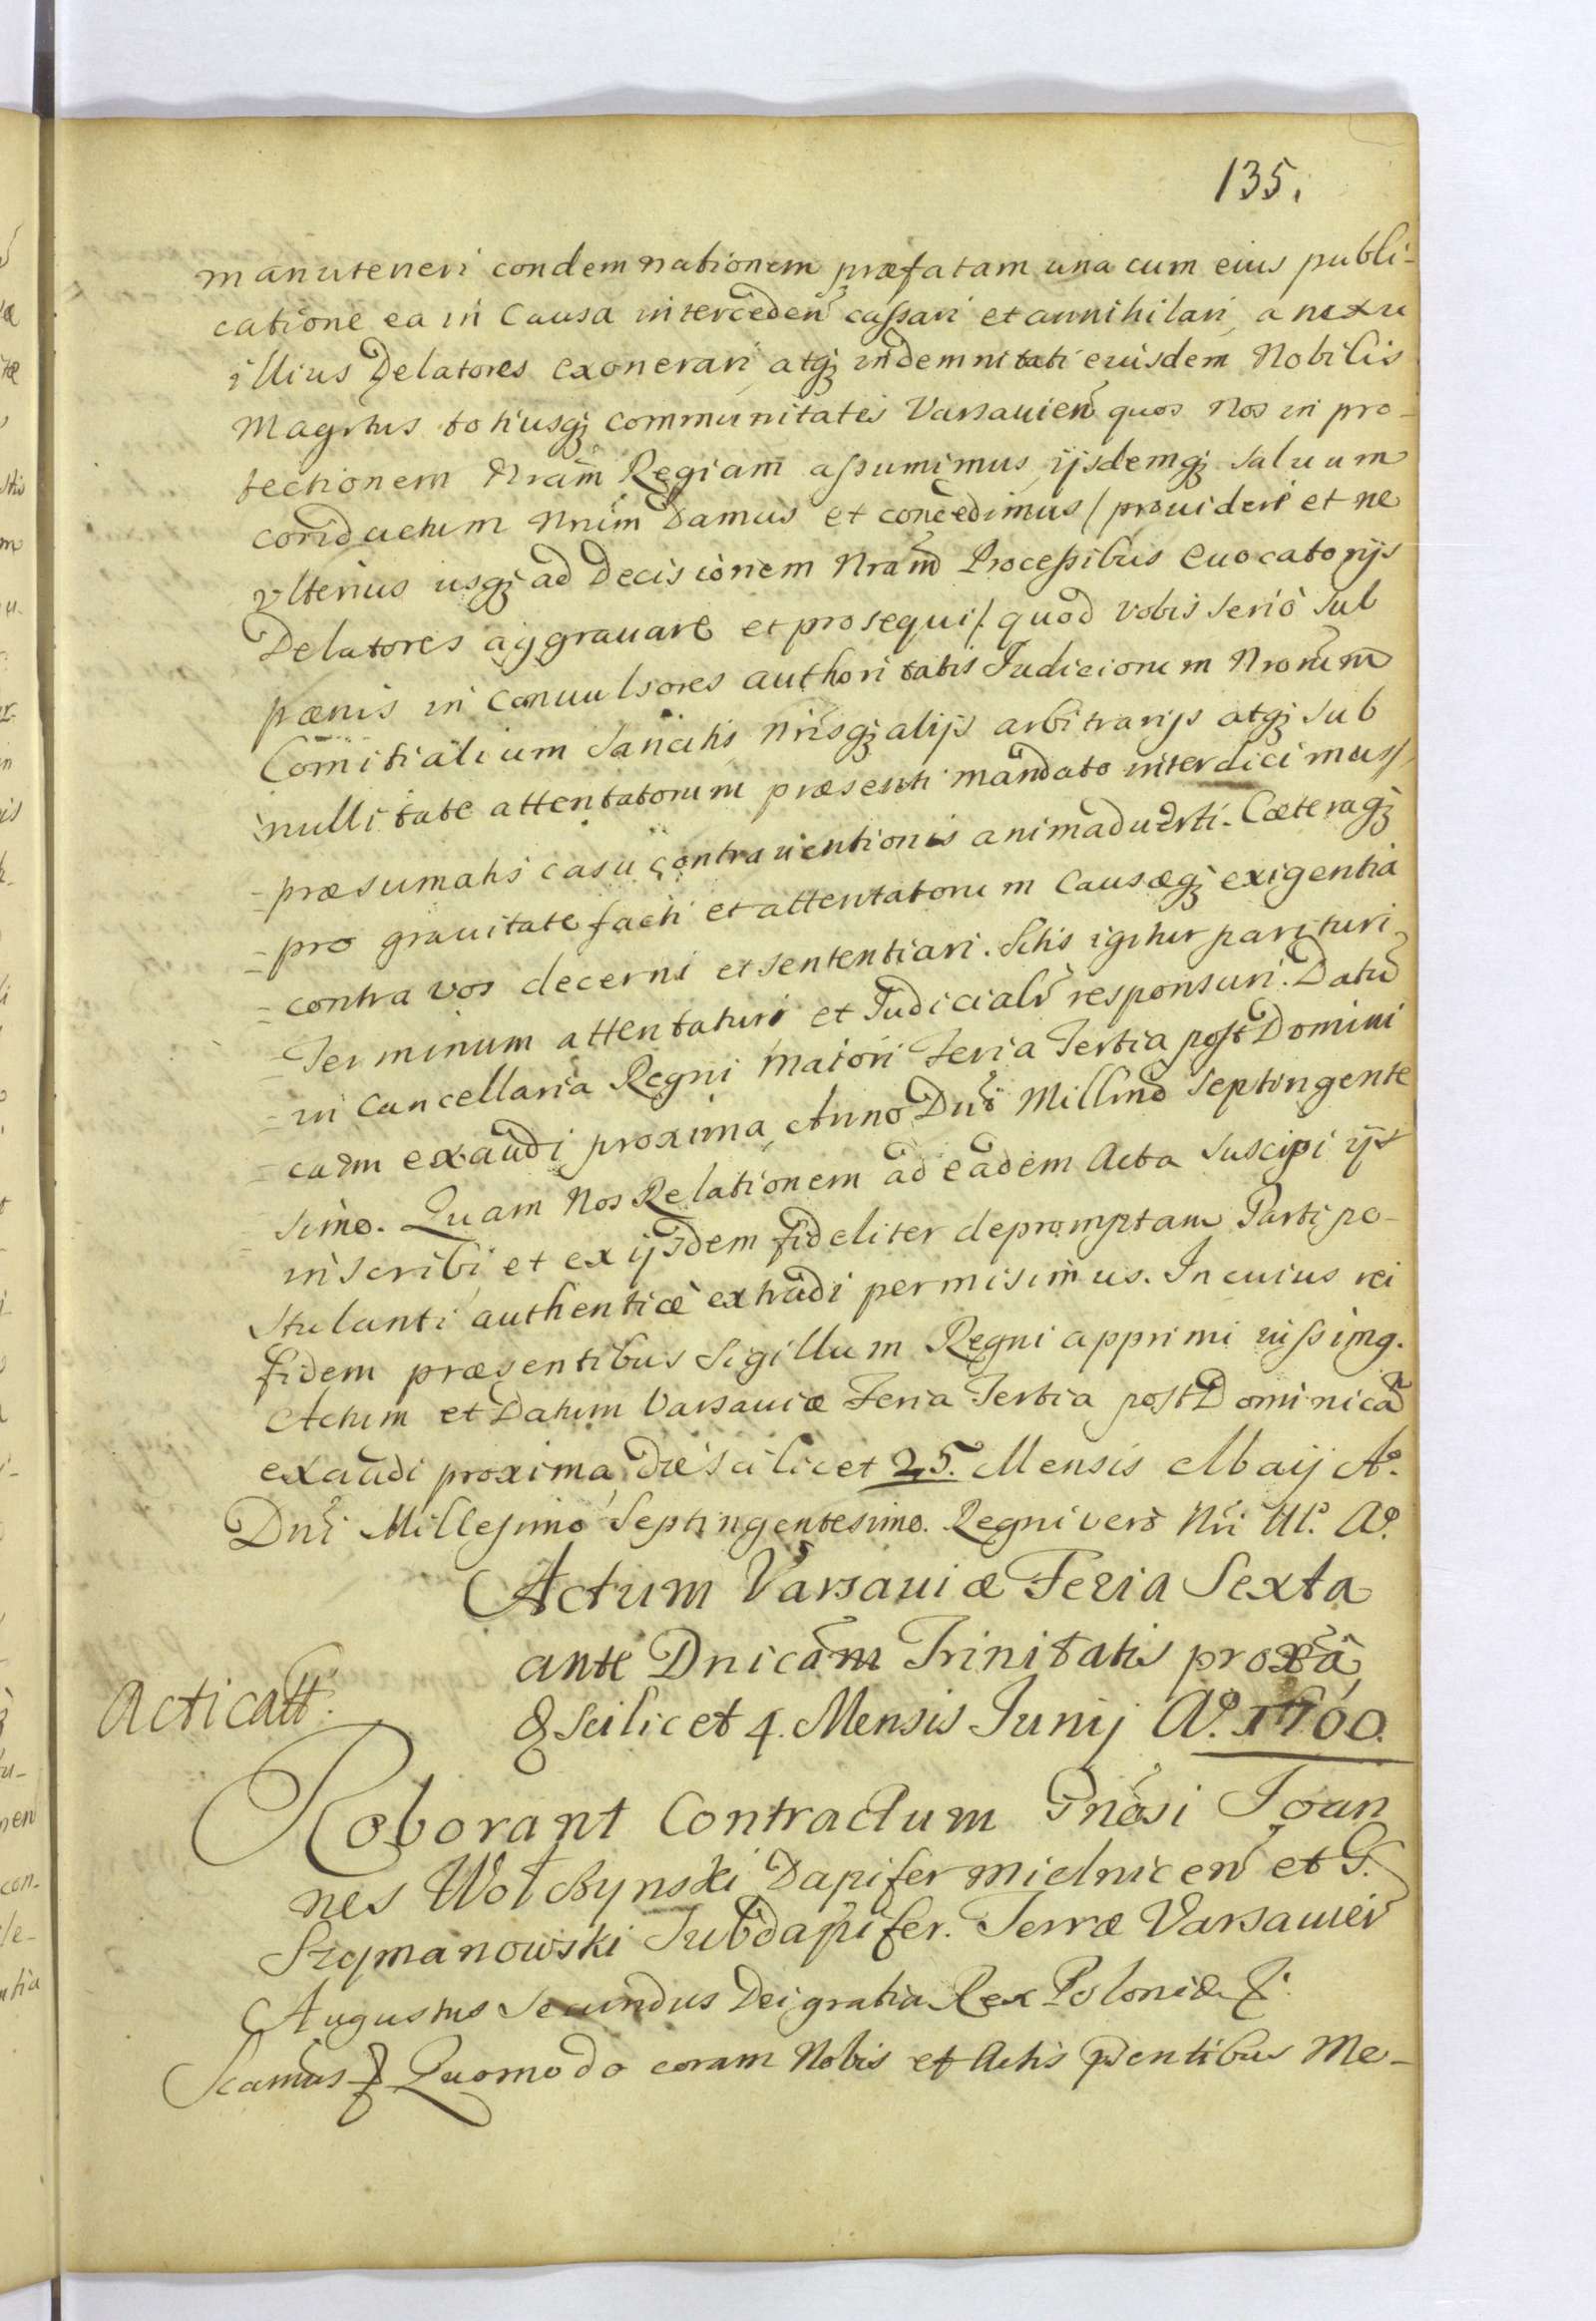 135.
manuteneri condemnationem præfatam una cum eius publi-
catione ea in Causa interceden̄ caſsari et annihilari, a nexu
illius Delatores exonerari, atq̨ indemnitati eiusdem Nobilis
Magr̄tus totiusq̨ communitatis Varsauien̄ quos Nos in pro-
tectionem Nrām Regiam aſsumimus, ijsdemq̨ saluum
conductum Nrūm Damus et concedimus / prouideri et ne
vlterius usq̨ ad Decisionem Nrām Proceſsibus Euocatorijs
Delatores aggrauare et prosequi /. quod vobis seriò sub
pœnis in Conuulsores authoritatis Iudiciorum Nrorūm
Comitialium Sancitis Nrisq̨ alijs arbitrarijs atq̨ sub
nullitate attentatorum præsenti mandato interdicimus /,
- præsumatis casu contrauentionis animaduerti. Cæteraq̨
= pro grauitate facti et attentatorum Causæq̨ exigentia
= contra vos decerni et sententiari. Sitis igitur parituri,
- Terminum attentaturi et Iudicialr̄ responsuri. Datū
= in Cancellaria Regni Maiori Feria Tertia post Domini
= cam exaudi proxima, Anno Dn̄i Millm̄o Septingente
- simo. Quam Nos Relationem ad eadem Acta suscipi ijs
inscribi, et ex ijsdem fideliter depromptam Parti po-
stulanti authenticè extradi permisimus. In cuius rei
fidem præsentibus Sigillum Regni apprimi iuſsimg.
Actum et Datum Varsauiæ Feria Tertia post Dominicā
exaudi proxima, die scilicet 25. Mensis Maij Aᵒ.
Dn̄i Milleſimo Septingentesimo. Regni vero Nri III.ᵒ Aᵒ.
Actum Varsauiæ Feria Sexta
ante Dnicām Trinitatis proxā
Acticatt.
scilicet 4. Mensis Iunij Aᵒ. 1700.
Roborant Contractum Gnōsi Ioan
nes Wołczynski Dapifer Mielnicen̄ et G.
Szymanowski Subdapifer. Terræ Varsauien̄
Augustus Secundus Dei gratia Rex Poloniæ &.
&. Quomodo coram Nobis et Actis pn̄tibus Me-